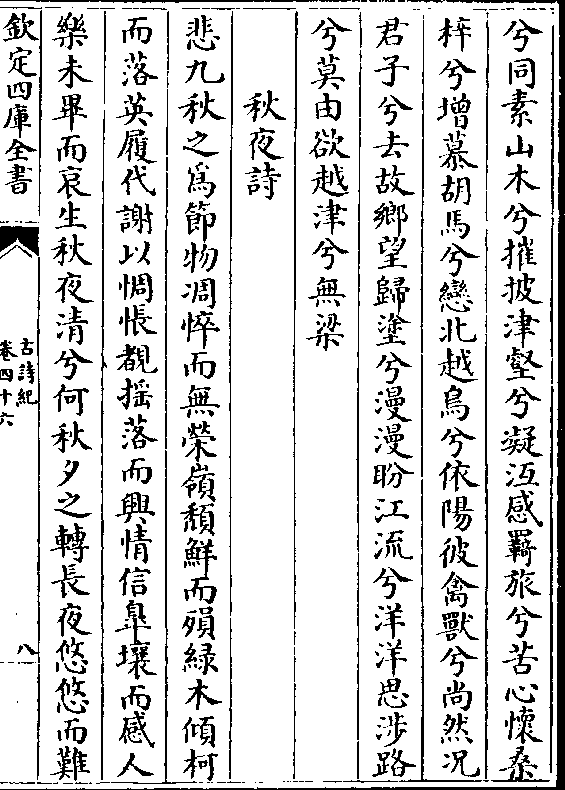 兮同素山木兮摧披津壑兮凝冱感羇旅兮苦心懷桑
梓兮增慕胡馬兮戀北越鳥兮依陽彼禽獸兮尚然况
君子兮去故鄉望歸塗兮漫漫盼江流兮洋洋思涉路
兮莫由欲越津兮無梁
秋夜詩
悲九秋之為節物凋悴而無榮嶺頽鮮而殞綠木傾柯
而落英履代謝以惆悵覩揺落而興情信臯壤而感人
樂未畢而哀生秋夜清兮何秋夕之轉長夜悠悠而難
欽定四庫全書
古詩紀
卷四十六
八